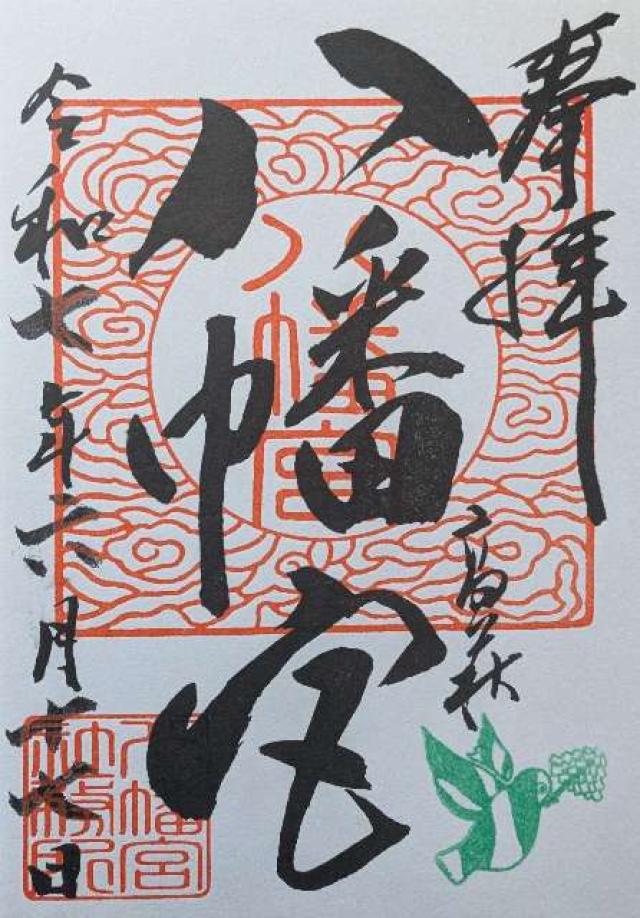 奉拝
高萩
八幡宮
八幡宮
令和七年六月十七日
八幡宮
社務所